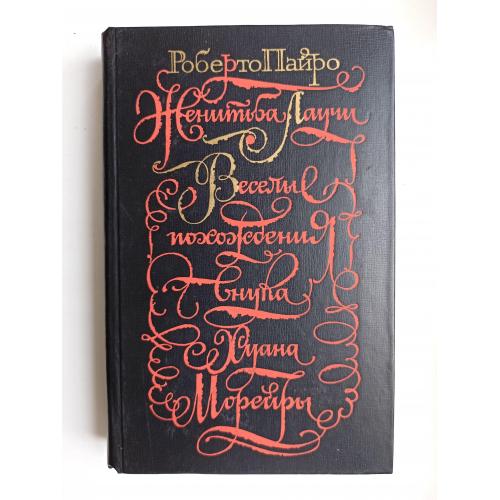 Роберто Пайро
Женитьба Лаучи
Веселые
похождения
внука
Хуана
Морейры